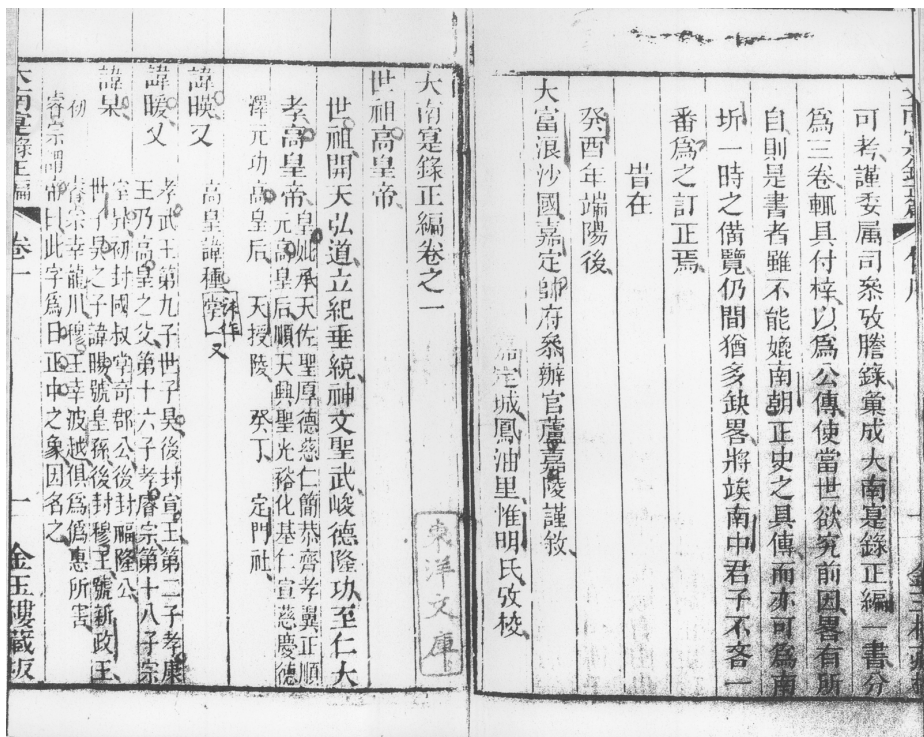 可考謹委属司叅攷謄錄彙成大南寔錄正編一書分
為三卷輒具付梓以為公傳使當世欲究前因畧有所
自則是書者雖不能媲南朝正史之具傳而亦可為南
圻一時之備覽仍間猶多缺畧將竢南中君子不吝一
番為之訂正焉
旹在
癸酉年端陽後
大富浪沙國嘉定帥府叅辦官蘆嘉陵謹敘
嘉定城鳳油里惟明氏攷梭
東洋文庫
大南寔錄正編卷之一
世祖高皇帝
世祖開天弘道立紀垂統神文聖武峻德隆功至仁大
孝高皇帝
皇妣承天佐聖厚德慈仁簡恭齊孝翼正順
元高皇后順天興聖光裕化基仁宣慈慶德
澤元功高皇后 天授陵 癸丁 定門社
高皇諱種
諱暎又
諱暖又
諱杲
孝武王第九子世子昊後封宣王第二子孝康
王乃高皇之父第十六子孝睿宗第十八子宗
室昇初封國叔掌奇郡公後封福隆公
世子昊之子諱暘號皇孫後封穆王號新政王
初 睿宗幸龍川穆王幸波越俱爲僞惠所害
睿宗謂帝曰此字爲日正中之象因名之
大南寔錄正編 卷一 一 金玉樓藏板